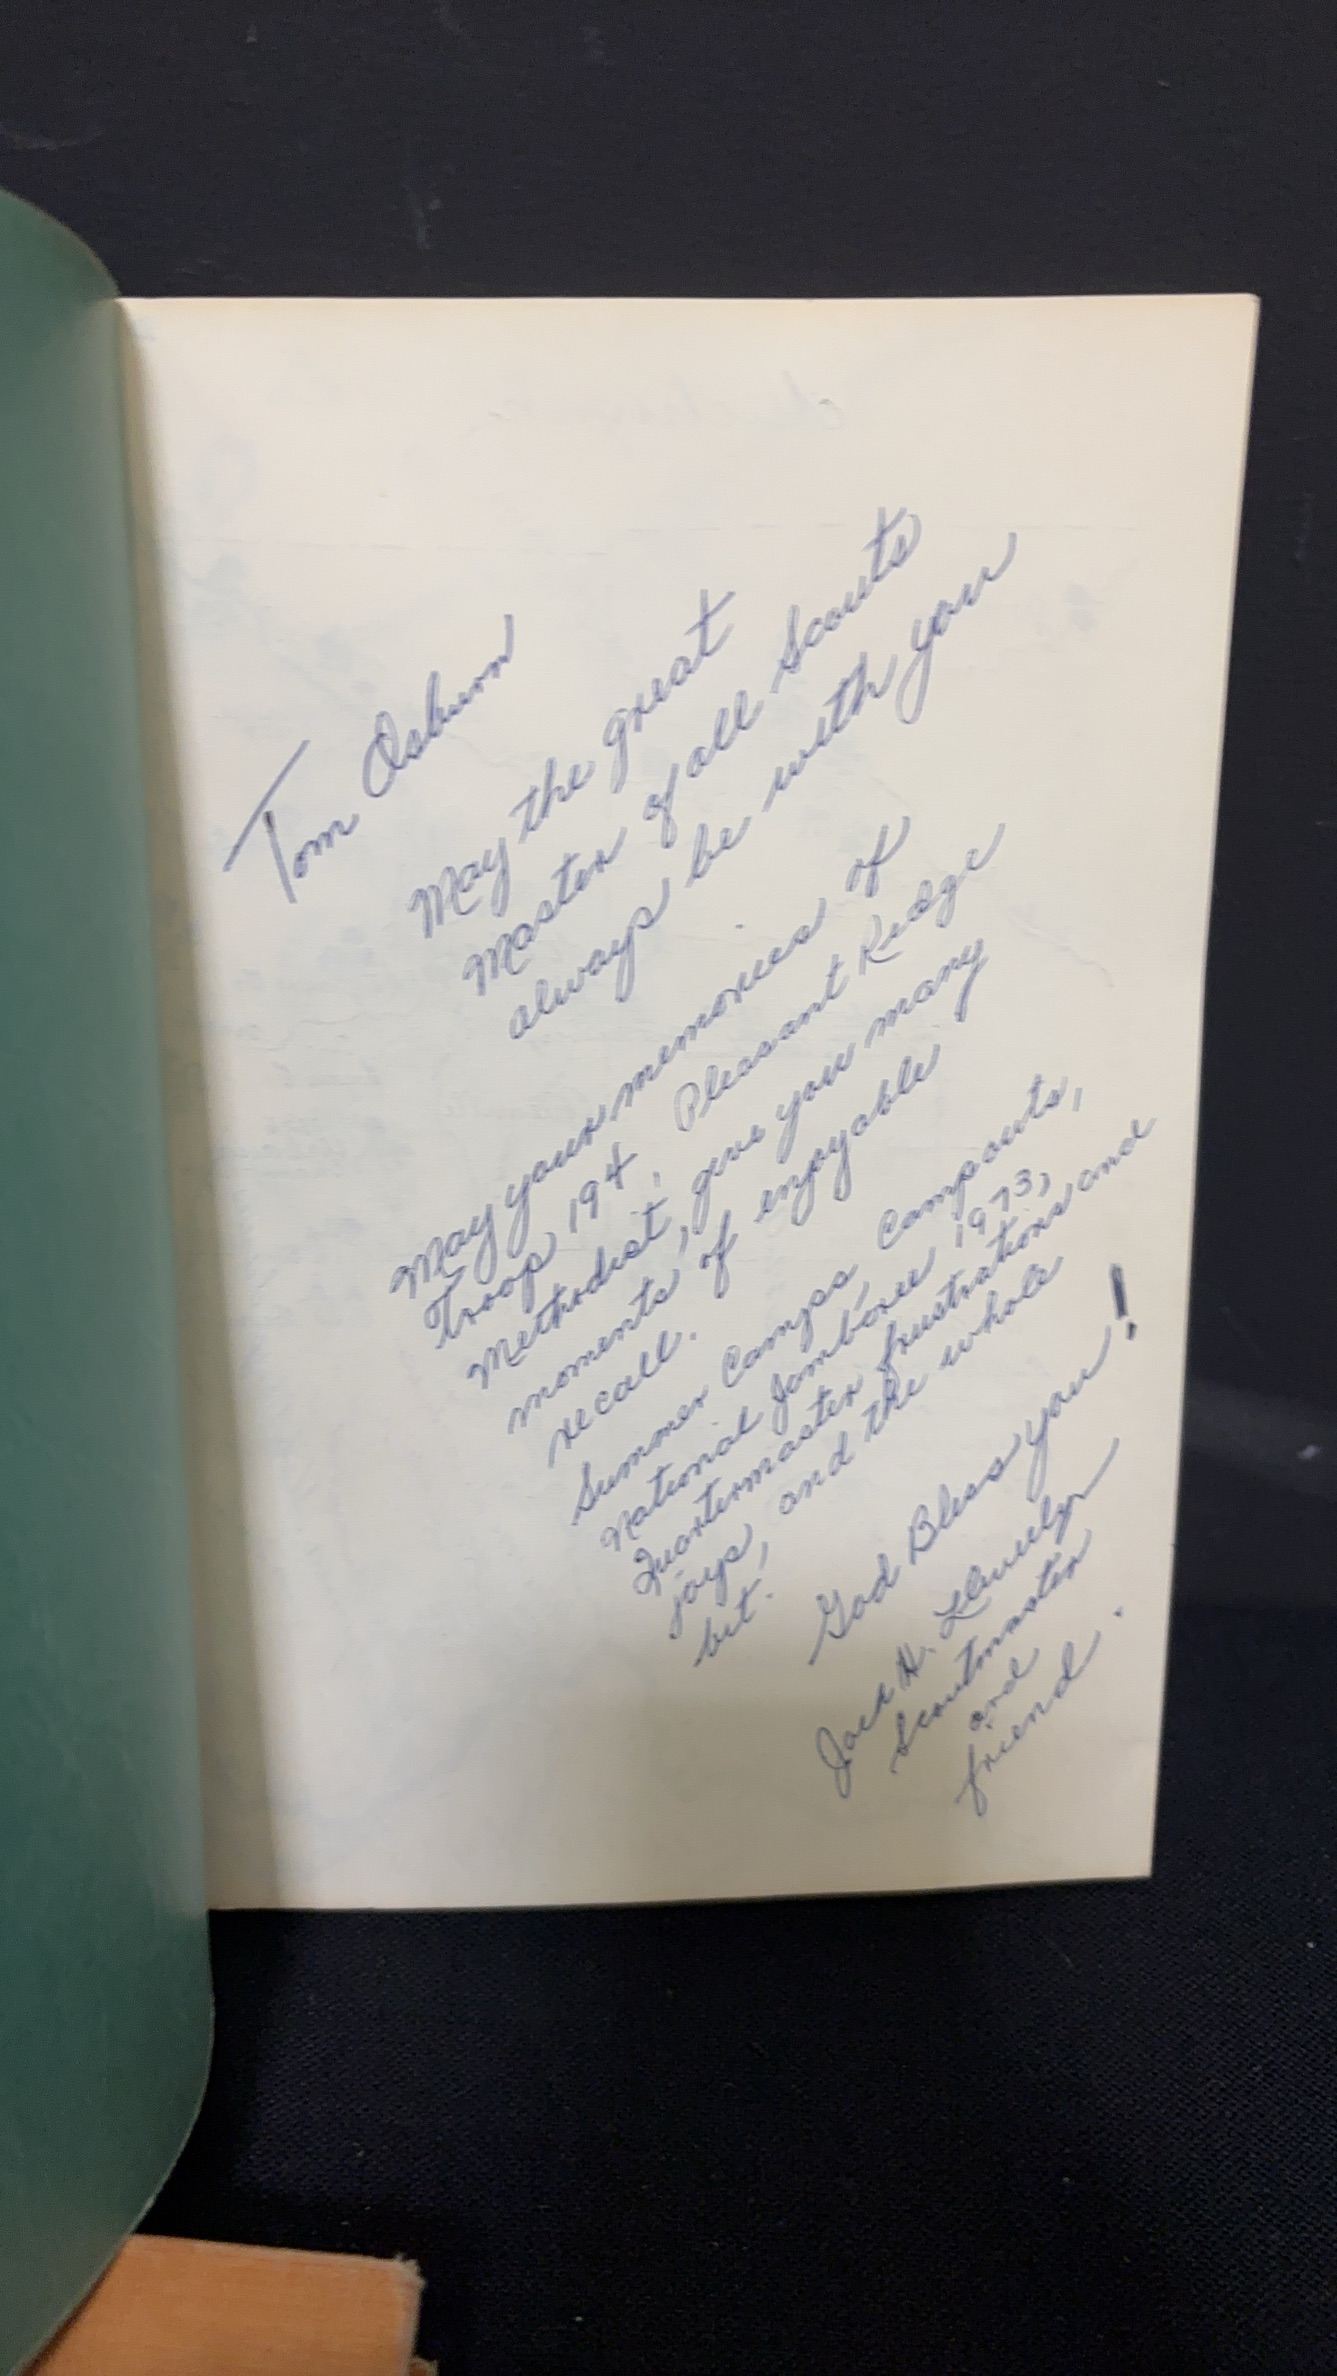 Tom Osburn
May the great
Master of all Scouts
always be with you
May your memories of
Troop 194, Pleasant Ridge
Methodist, give you many
moments of enjoyable
recall.
Summer Camps, Campouts,
National Jamboree 1973,
Quartermaster frustrations and
joys, and the whole
bit.
God Bless you!
Jack H. Llewelyn
Scoutmaster
and
friend.